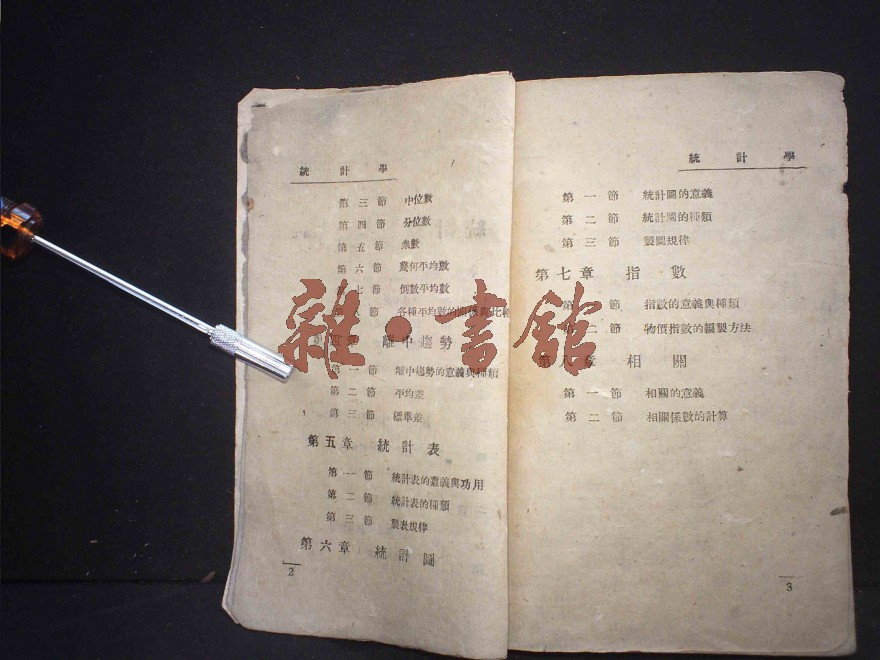 統計學
第三節 中位數
第四節 分位數
第五節 衆數
第六節 幾何平均數
七節 倒數平均數
第八節 各種平均數的關係與比較
章 離中趨勢
第一節 離中趨勢的意義與種類
第二節 平均差
第三節 標準差
第五章 統計表
第一節 統計表的意義與功用
第二節 統計表的種類
第三節 製表規律
第六章 統計圖
2
統計學
第一節 統計圖的意義
第二節 統計圖的種類
第三節 製圖規律
第七章 指數
第一節 指數的意義與種類
第二節 物價指數的編製方法
第八章 相關
第一節 相關的意義
第二節 相關係數的計算
3
雜·書館